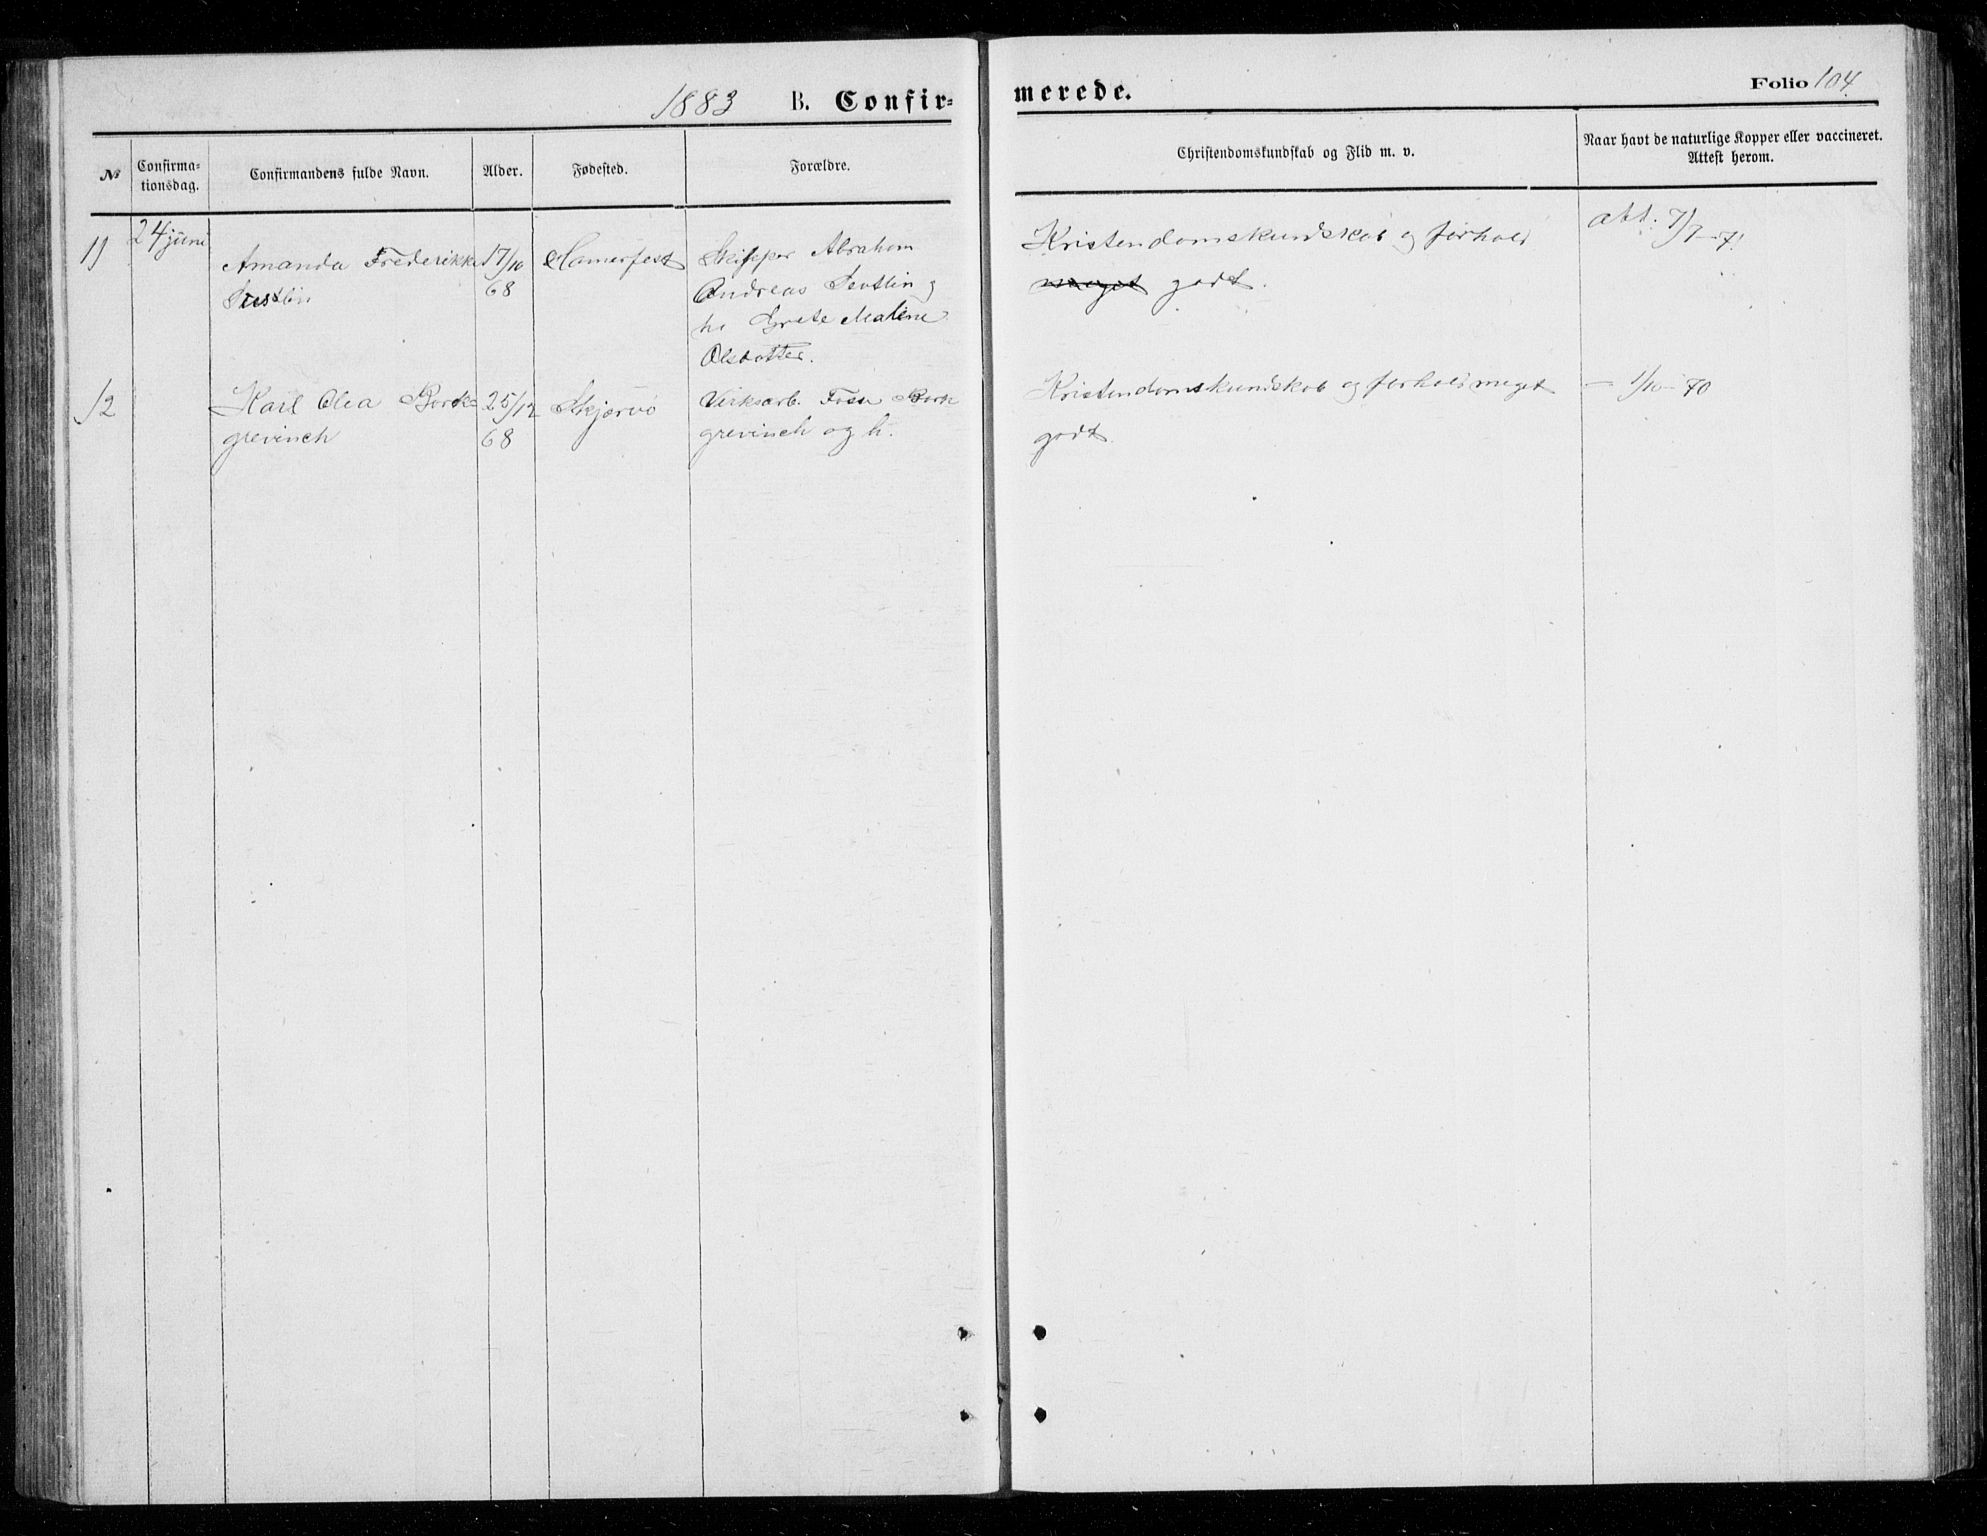 1883 B. Confir=
merede.
Folio 104.
No
Confirma=
tionsdag.
Confirmandens fulde Navn.
Alder.
Fødested.
Forældre.
Christendomskundskab og Flid m. v.
Naar havt de naturlige Kopper eller vaccineret.
Attest herom.
11
24 juni
Amanda Frederikke
17/10
68
Hamerfest
Skipper Abraham
Andreas
Grete Malene
Olsdatter.
Kristendomskundskab og forhold
meget godt.
att. 7/7-71
12
Karl Olea Bork=
grevinch
25/12
68
Skjervö
Virksarb. Bork
grevinch og h.
Kristendomskundskab og forhold meget
godt.
— 1/10-70